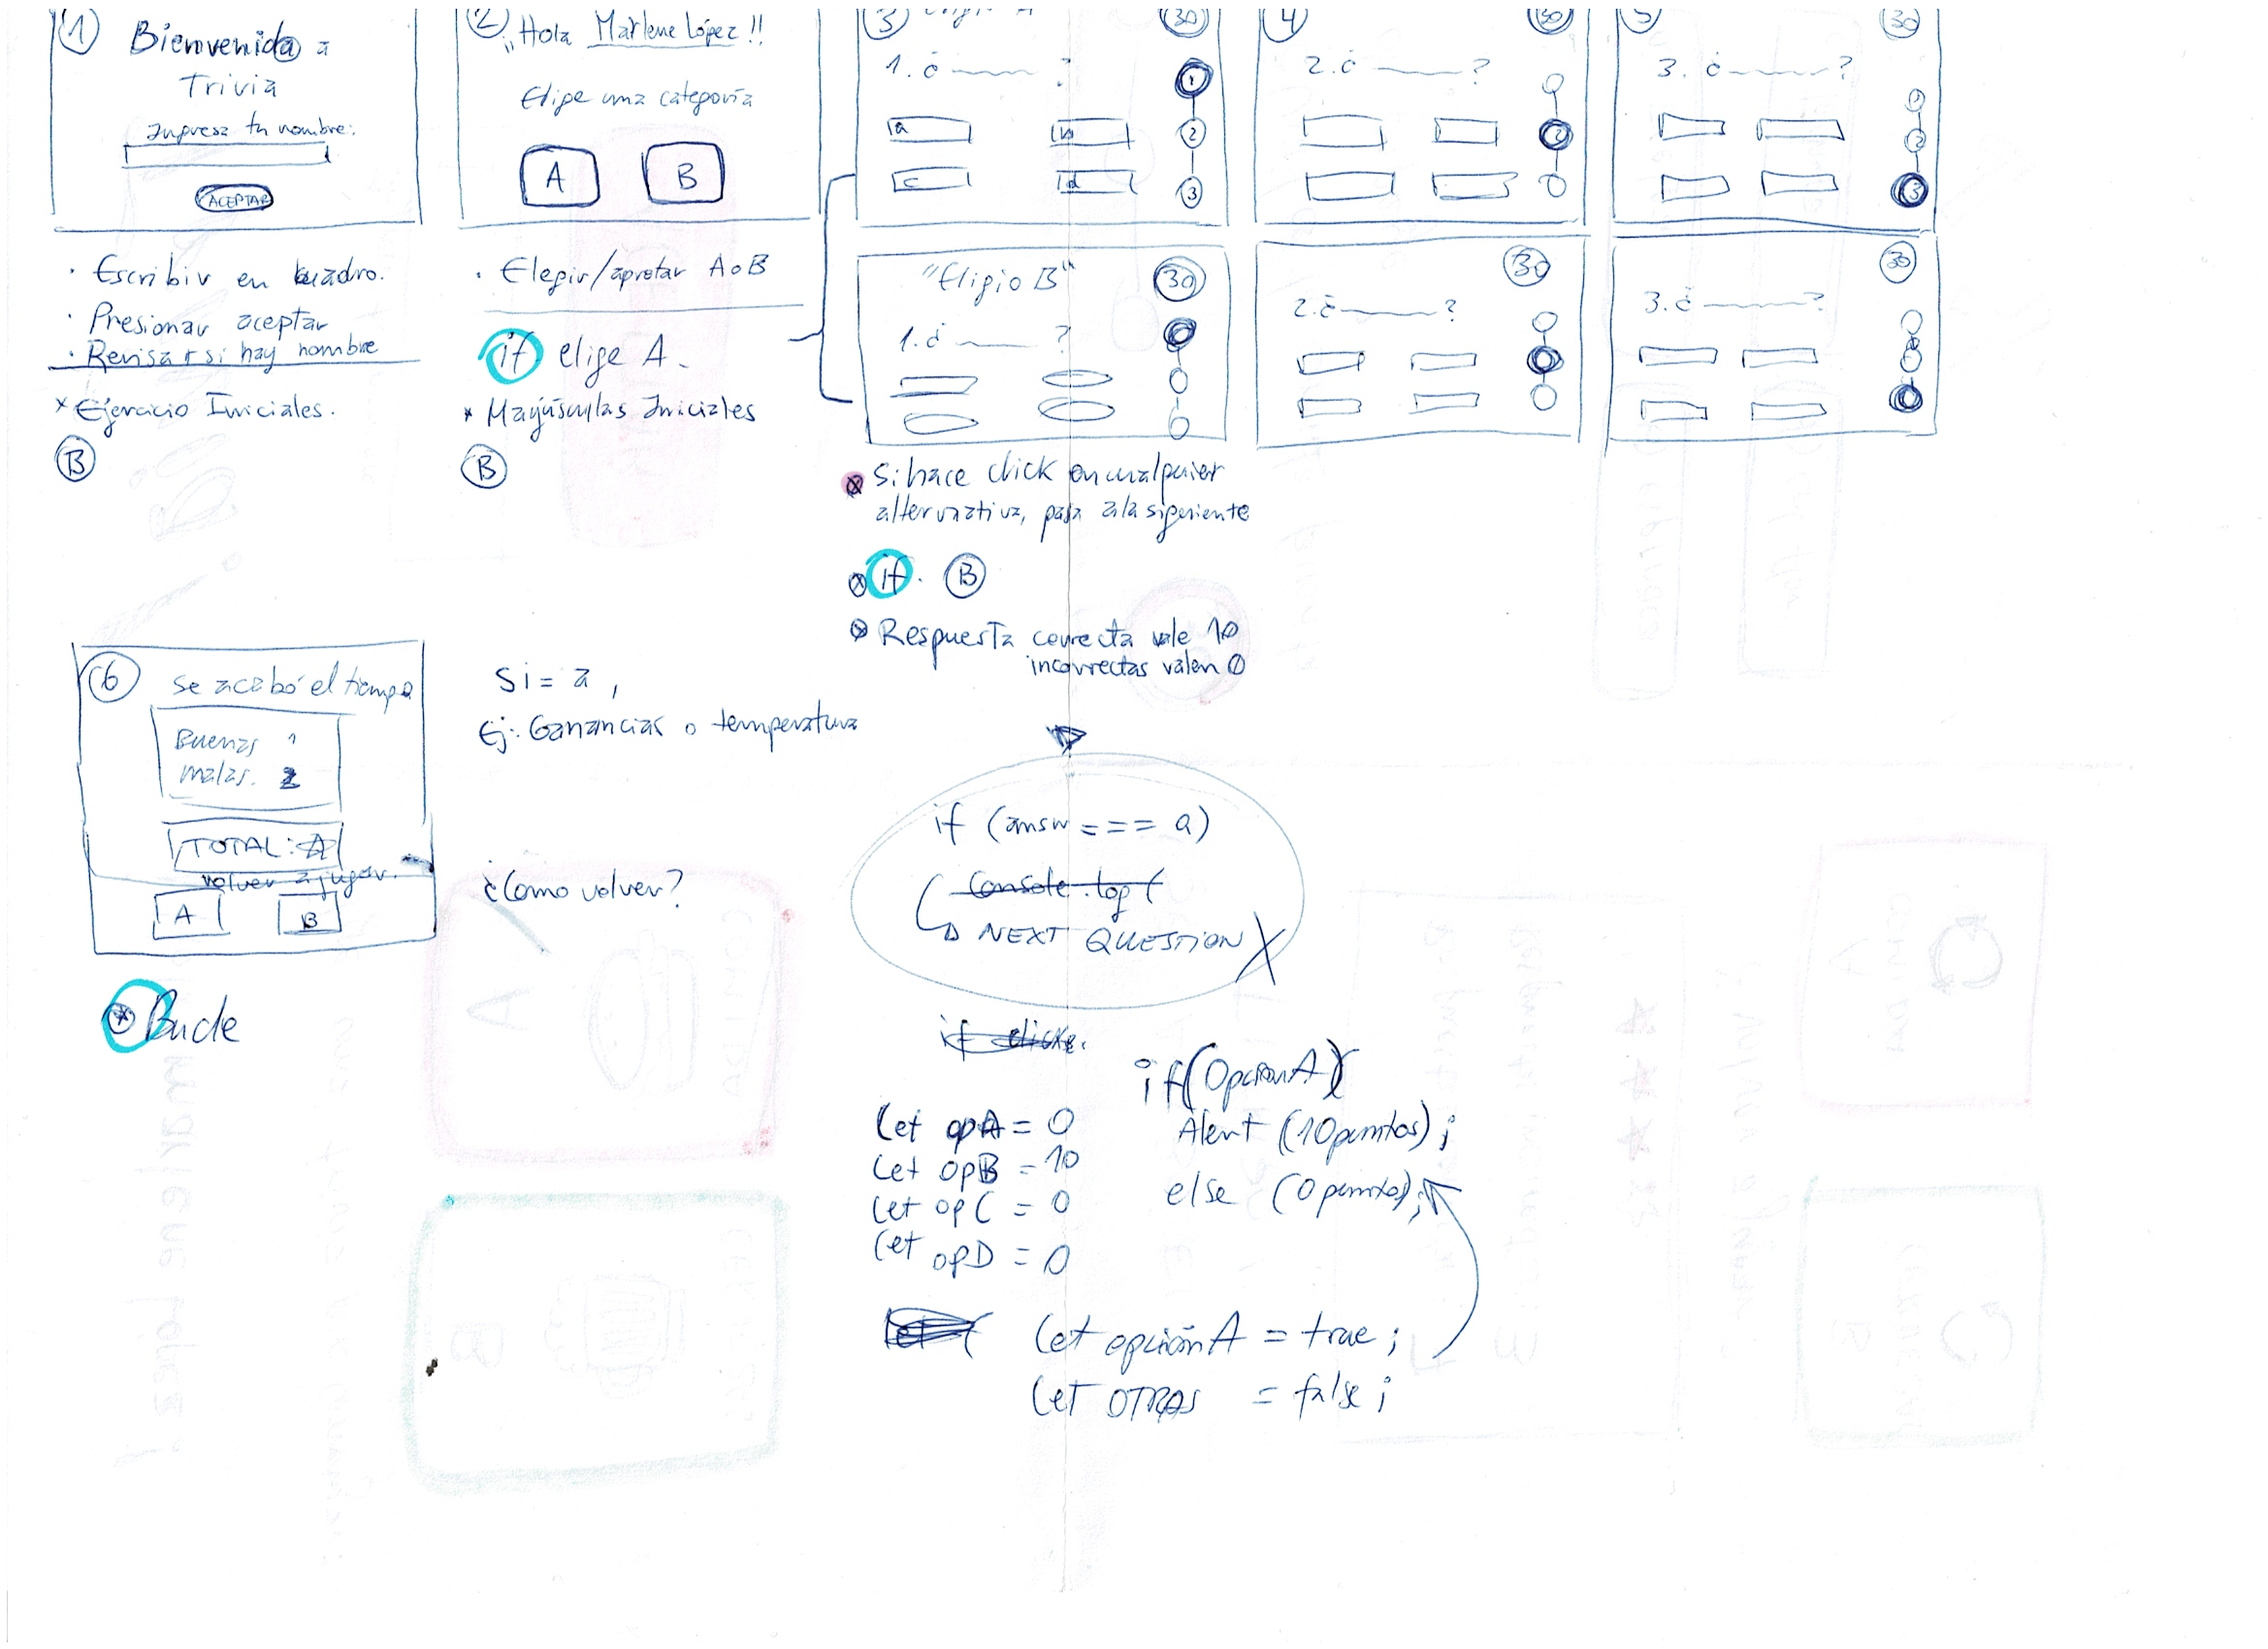 1 Bienvenid@ a
Trivia
Ingresa tu nombre:
ACEPTAR
· Escribir en cuadro.
· Presionar aceptar
· Revisar si hay nombre
* Ejercicio Iniciales.
B
2 "Hola Marlene López!!
Elige una categoría
A B
· Elegir/apretar A o B
if elige A.
* Mayúsculas Iniciales
B
3 30
1. ¿ ?
a b
c d
1
2
3
4 30
2. ¿ ?
2
5 30
3. ¿ ?
2
3
"Eligio B" 30
1. ¿ ?
30
2. ¿ ?
30
3. ¿ ?
Si hace click en cualquier
alternativa, pasa a la siguiente
if. B
Respuesta correcta vale 10
incorrectas valen 0
6 se acabó el tiempo
Buenas 1
malas. 2
TOTAL:
volver a jugar.
A B
* Bucle
Si = a,
Ej: Ganancias o temperatura
¿Como volver?
if (answ === a)
Console.log(
NEXT QUESTION X
if click.
let opA = 0
let opB = 10
let opC = 0
let opD = 0
if(OpcionA){
Alert (10puntos);
else (0 puntos);
let (
let opciónA = true;
let OTRAS = false;